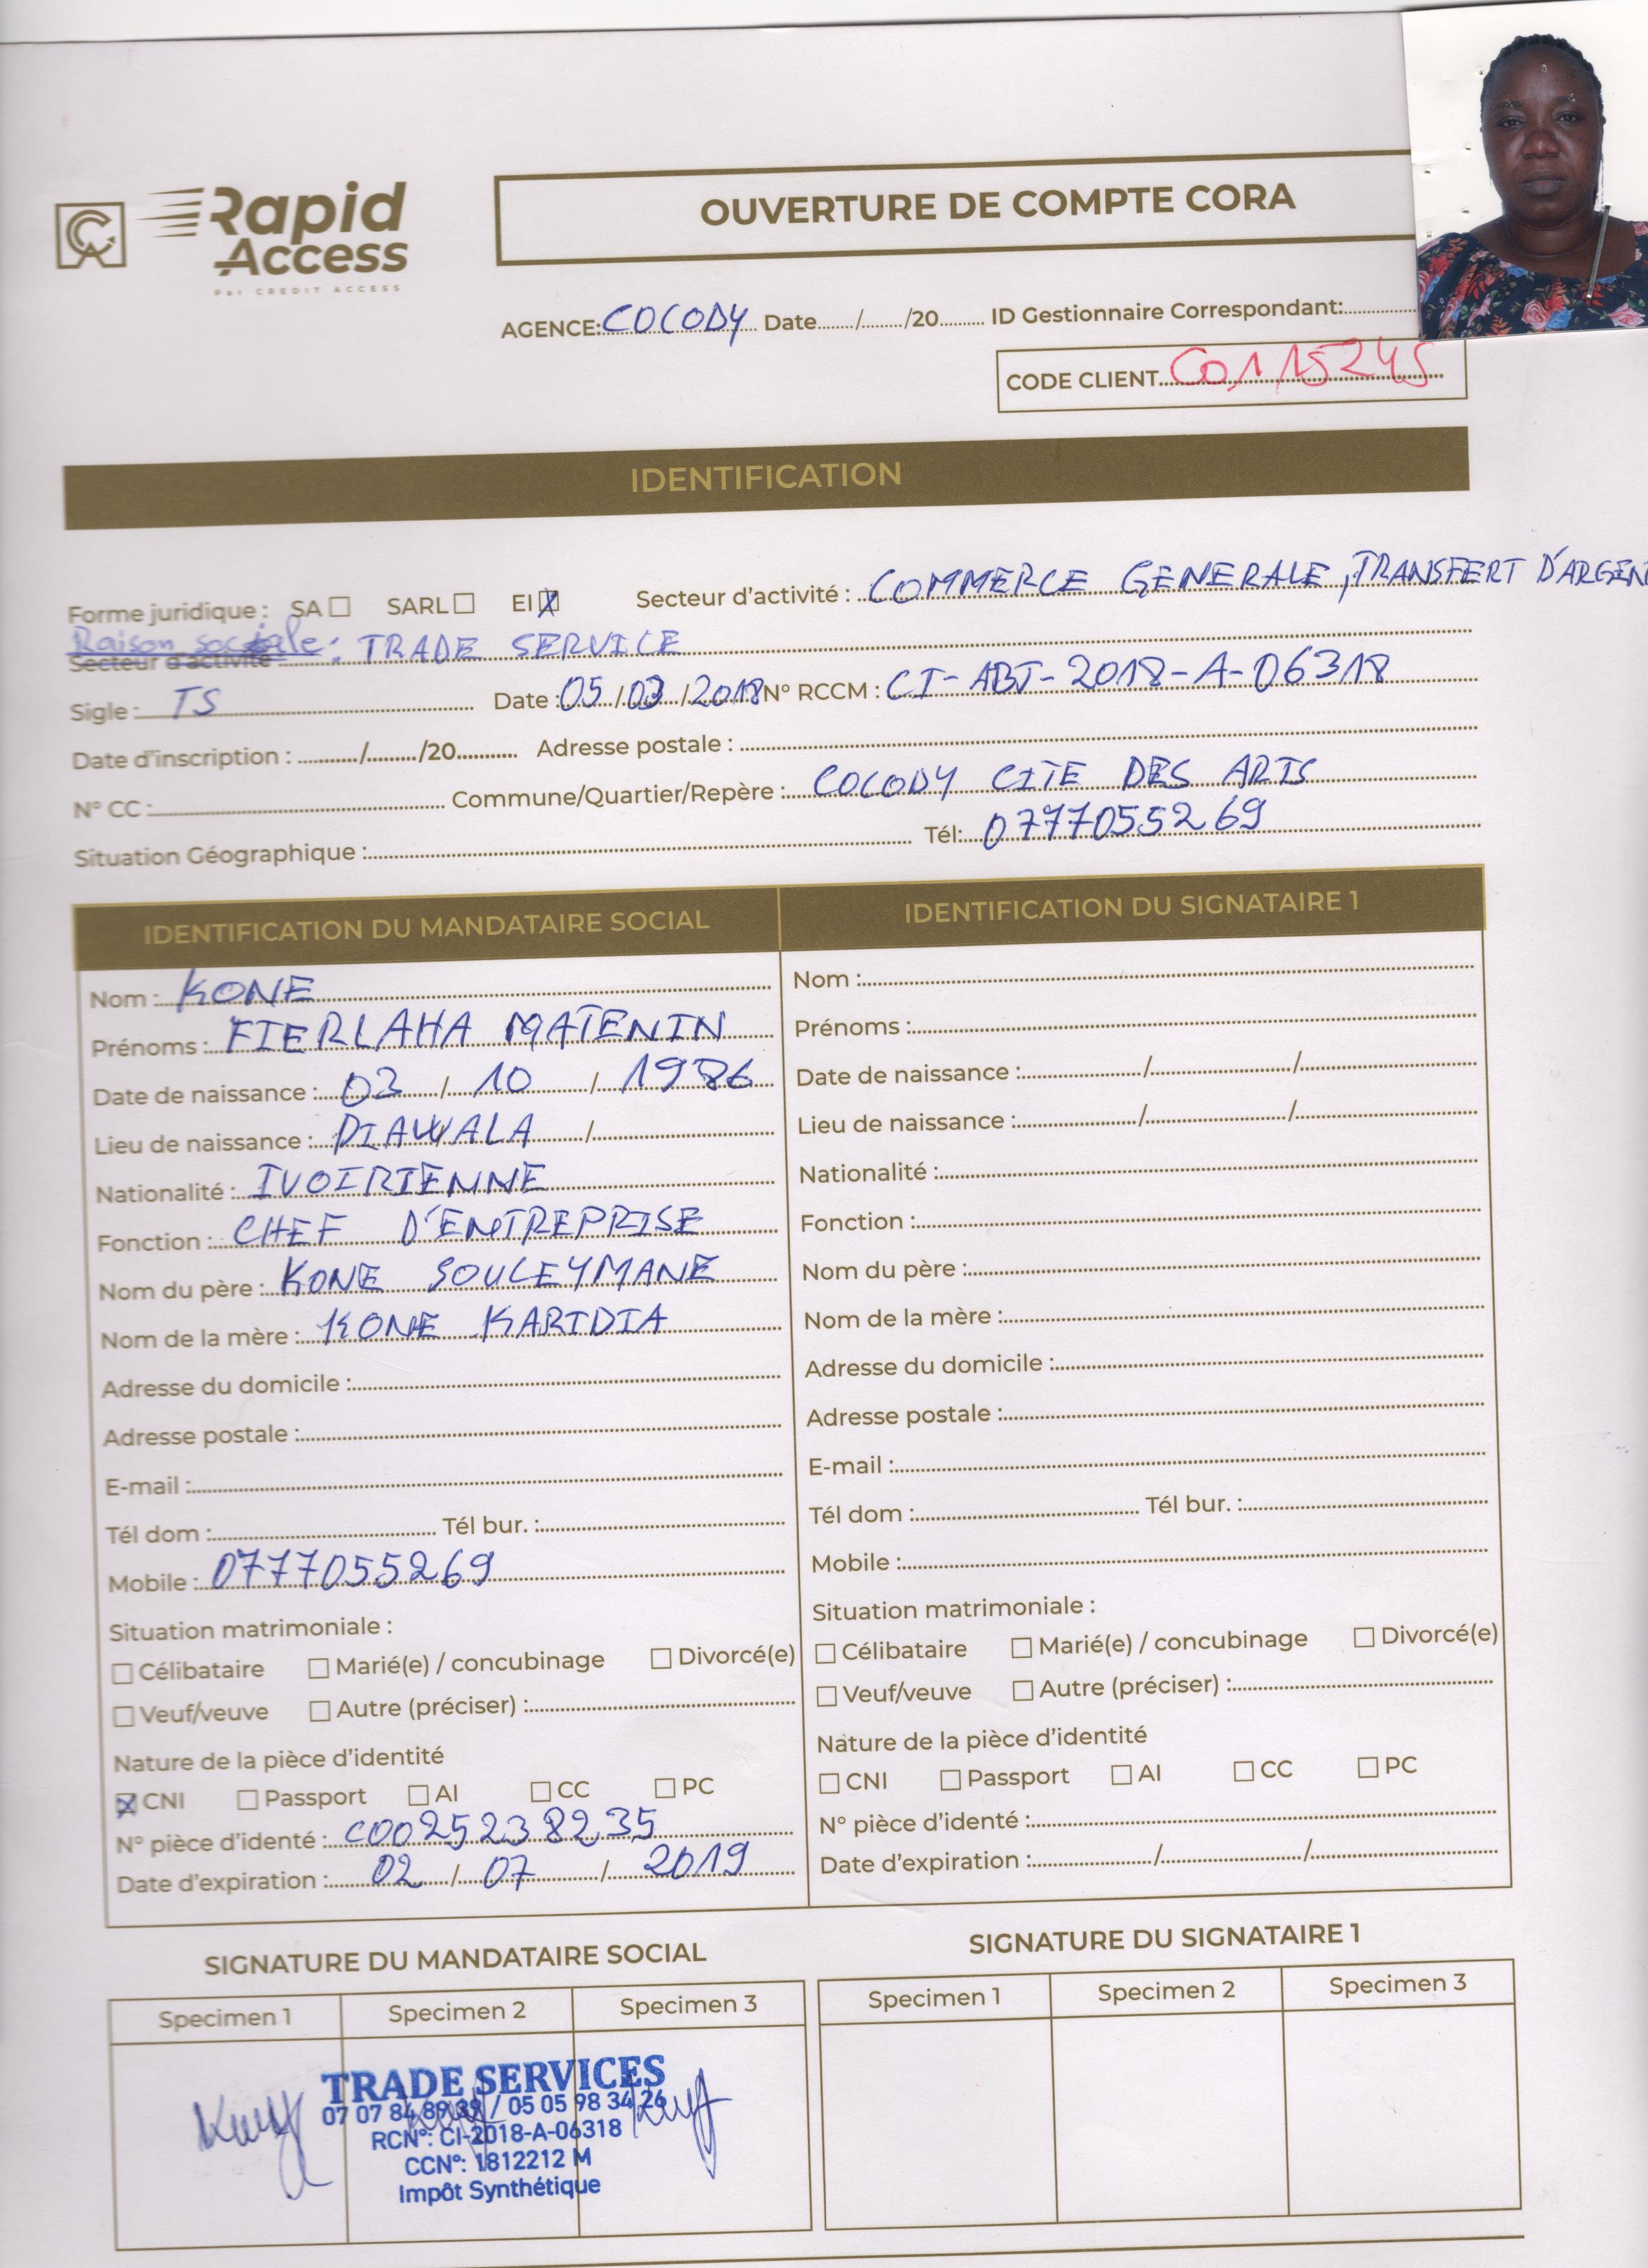 Rapid Access
Par CREDIT ACCESS
OUVERTURE DE COMPTE CORA
AGENCE: COCODY Date ....../....../20...... ID Gestionnaire Correspondant:
CODE CLIENT C0115245
IDENTIFICATION
Forme juridique : SA ☐ SARL ☐ EI ☒ Secteur d'activité : COMMERCE GENERALE, TRANSFERT D'ARGEN
Raison sociale : TRADE SERVICE
Secteur d'activité
Sigle : TS Date : 05/03/2018 N° RCCM : CI-ABJ-2018-A-06318
Date d'inscription : ....../....../20...... Adresse postale :
N° CC : Commune/Quartier/Repère : COCODY CITE DES ARTS
Situation Géographique : Tél: 0777055269
IDENTIFICATION DU MANDATAIRE SOCIAL
Nom : KONE
Prénoms : FIERLAHA MATENIN
Date de naissance : 02 / 10 / 1986
Lieu de naissance : DIAWALA /
Nationalité : IVOIRIENNE
Fonction : CHEF D'ENTREPRISE
Nom du père : KONE SOULEYMANE
Nom de la mère : KONE KARIDIA
Adresse du domicile :
Adresse postale :
E-mail :
Tél dom : Tél bur. :
Mobile : 0777055269
Situation matrimoniale :
☐ Célibataire ☐ Marié(e) / concubinage ☐ Divorcé(e)
☐ Veuf/veuve ☐ Autre (préciser) :
Nature de la pièce d'identité
☒ CNI ☐ Passport ☐ AI ☐ CC ☐ PC
N° pièce d'identé : C0025238235
Date d'expiration : 02 / 07 / 2019
IDENTIFICATION DU SIGNATAIRE 1
Nom :
Prénoms :
Date de naissance : / /
Lieu de naissance : / /
Nationalité :
Fonction :
Nom du père :
Nom de la mère :
Adresse du domicile :
Adresse postale :
E-mail :
Tél dom : Tél bur. :
Mobile :
Situation matrimoniale :
☐ Célibataire ☐ Marié(e) / concubinage ☐ Divorcé(e)
☐ Veuf/veuve ☐ Autre (préciser) :
Nature de la pièce d'identité
☐ CNI ☐ Passport ☐ AI ☐ CC ☐ PC
N° pièce d'identé :
Date d'expiration : / /
SIGNATURE DU MANDATAIRE SOCIAL
Specimen 1 Specimen 2 Specimen 3
TRADE SERVICES
07 07 84 89 39 / 05 05 98 34 26
RCN°: CI-2018-A-06318
CCN°: 1812212 M
Impôt Synthétique
SIGNATURE DU SIGNATAIRE 1
Specimen 1 Specimen 2 Specimen 3